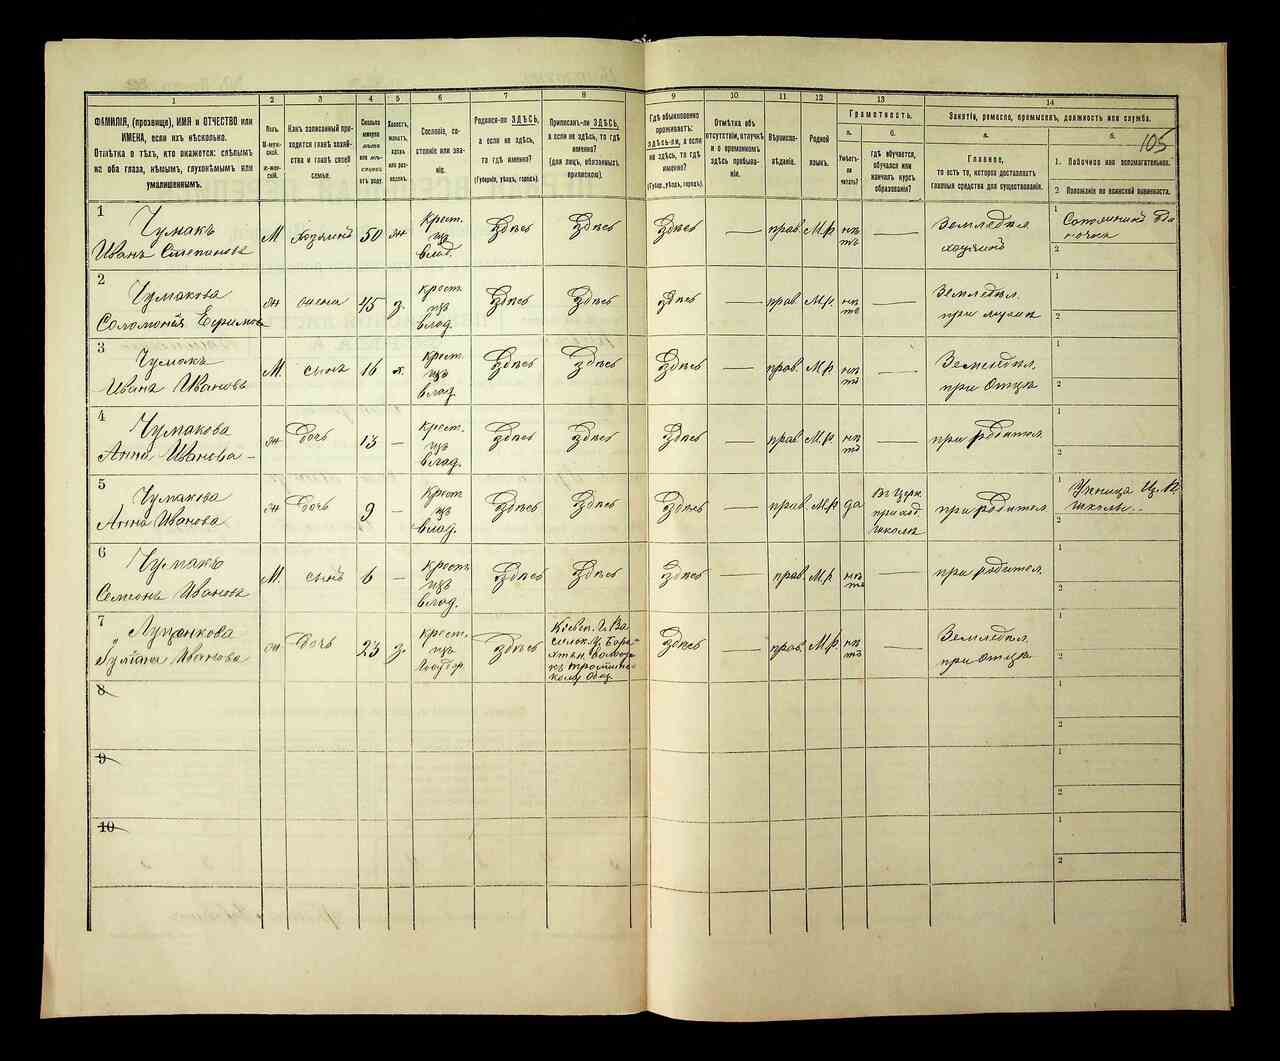 105
1
2
3
4
5
6
7
8
9
10
11
12
13
14
ФАМИЛІЯ, (прозвище), ИМЯ и ОТЧЕСТВО или
ИМЕНА, если ихъ нѣсколько.
Отмѣтка о тѣхъ, кто окажется: слѣпымъ
на оба глаза, нѣмымъ, глухонѣмымъ или
умалишеннымъ.
Полъ.
М-мужской.
Ж-женскій.
Какъ записанный приходится
главѣ хозяйства
и главѣ своей
семьи.
Сколько
минуло
лѣтъ
или мѣсяцевъ
отъ роду.
Холостъ,
женатъ,
вдовъ
или разведенъ.
Сословіе, состояніе
или званіе.
Родился-ли ЗДѢСЬ,
а если не здѣсь,
то гдѣ именно?
(Губернія, уѣздъ, городъ).
Приписанъ-ли ЗДѢСЬ,
а если не здѣсь, то гдѣ
именно?
(для лицъ, обязанныхъ
припискою).
Гдѣ обыкновенно
проживаетъ:
здѣсь-ли, а если
не здѣсь, то гдѣ
именно?
(Губер., уѣздъ, городъ).
Отмѣтка объ
отсутствіи, отлучкѣ
и о временномъ
здѣсь пребываніи.
Вѣроисповѣданіе.
Родной
языкъ.
Грамотность.
а.
Умѣетъ-ли
читать?
б.
гдѣ обучается,
обучался или
кончилъ курсъ
образованія?
Занятіе, ремесло, промыселъ, должность или служба.
а.
Главное,
то есть то, которое доставляетъ
главныя средства для существованія.
б.
1. Побочное или вспомогательное.
2 Положеніе по воинской повинности.
1
Чумакъ
Иванъ Степановъ
М хозяинъ 50 ж Крест. изъ влад. Здѣсь Здѣсь Здѣсь — прав. М.р. нѣтъ — Земледѣл. хозяинъ
1
2
2
Чумакова
Соломонія Ефимова
ж жена 45 з. крест. изъ влад. Здѣсь Здѣсь Здѣсь — прав. М.р. нѣтъ — Земледѣл. при мужѣ
1
2
3
Чумакъ
Иванъ Ивановъ
М. сынъ 16 х. крест. изъ влад. Здѣсь Здѣсь Здѣсь — прав. М.р. нѣтъ — Земледѣл. при Отцѣ
1
2
4
Чумакова
Анна Иванова
ж дочь 13 — Крест. изъ влад. Здѣсь Здѣсь Здѣсь — прав. М.р. нѣтъ — при родител.
1
2
5
Чумакова
Анна Иванова
ж дочь 9 — Крест. изъ влад. Здѣсь Здѣсь Здѣсь — прав. М.р. да Въ Церк. приход. школѣ при родител.
1 Ученица Ц. П. школы.
2
6
Чумакъ
Семіонъ Ивановъ
М. сынъ 6 — крест. изъ влад. Здѣсь Здѣсь Здѣсь — прав. М.р. нѣтъ — при родител.
1
2
7
Иванова
ж дочь 23 з. крест. изъ Государ. Здѣсь Кіевск. Г. Васильк. У. Здѣсь — прав. М.р. нѣтъ — Земледѣл. при Отцѣ
1
2
8
1
2
9
1
2
10
1
2